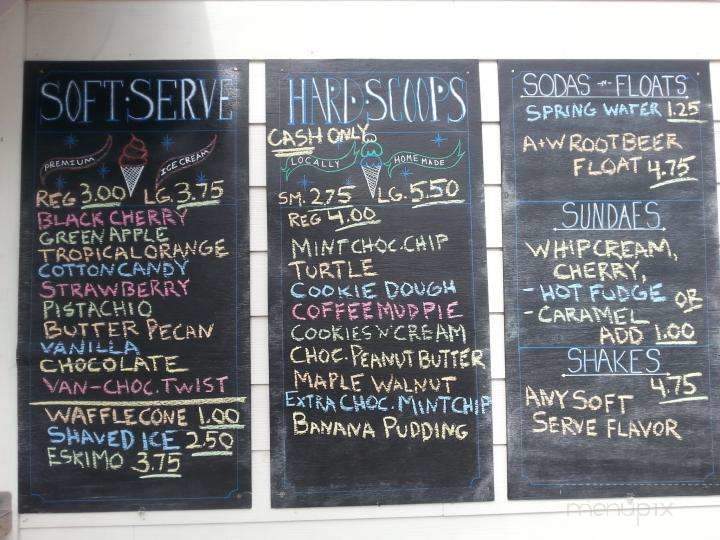 SOFT·SERVE
PREMIUM
ICE CREAM
REG 3.00 LG. 3.75
BLACK CHERRY
GREEN APPLE
TROPICAL ORANGE
COTTON CANDY
STRAWBERRY
PISTACHIO
BUTTER PECAN
VANILLA
CHOCOLATE
VAN-CHOC. TWIST
WAFFLE CONE 1.00
SHAVED ICE 2.50
ESKIMO 3.75
HARD·SCOOPS
CASH ONLY
LOCALLY
HOMEMADE
SM. 2.75 LG. 5.50
REG 4.00
MINT CHOC. CHIP
TURTLE
COOKIE DOUGH
COFFEE MUD PIE
COOKIES 'N' CREAM
CHOC. PEANUT BUTTER
MAPLE WALNUT
EXTRA CHOC. MINT CHIP
BANANA PUDDING
SODAS -N- FLOATS
SPRING WATER 1.25
A+W ROOT BEER
FLOAT 4.75
SUNDAES
WHIP CREAM,
CHERRY,
- HOT FUDGE OR
- CARAMEL
ADD 1.00
SHAKES
4.75
ANY SOFT
SERVE FLAVOR
menupix